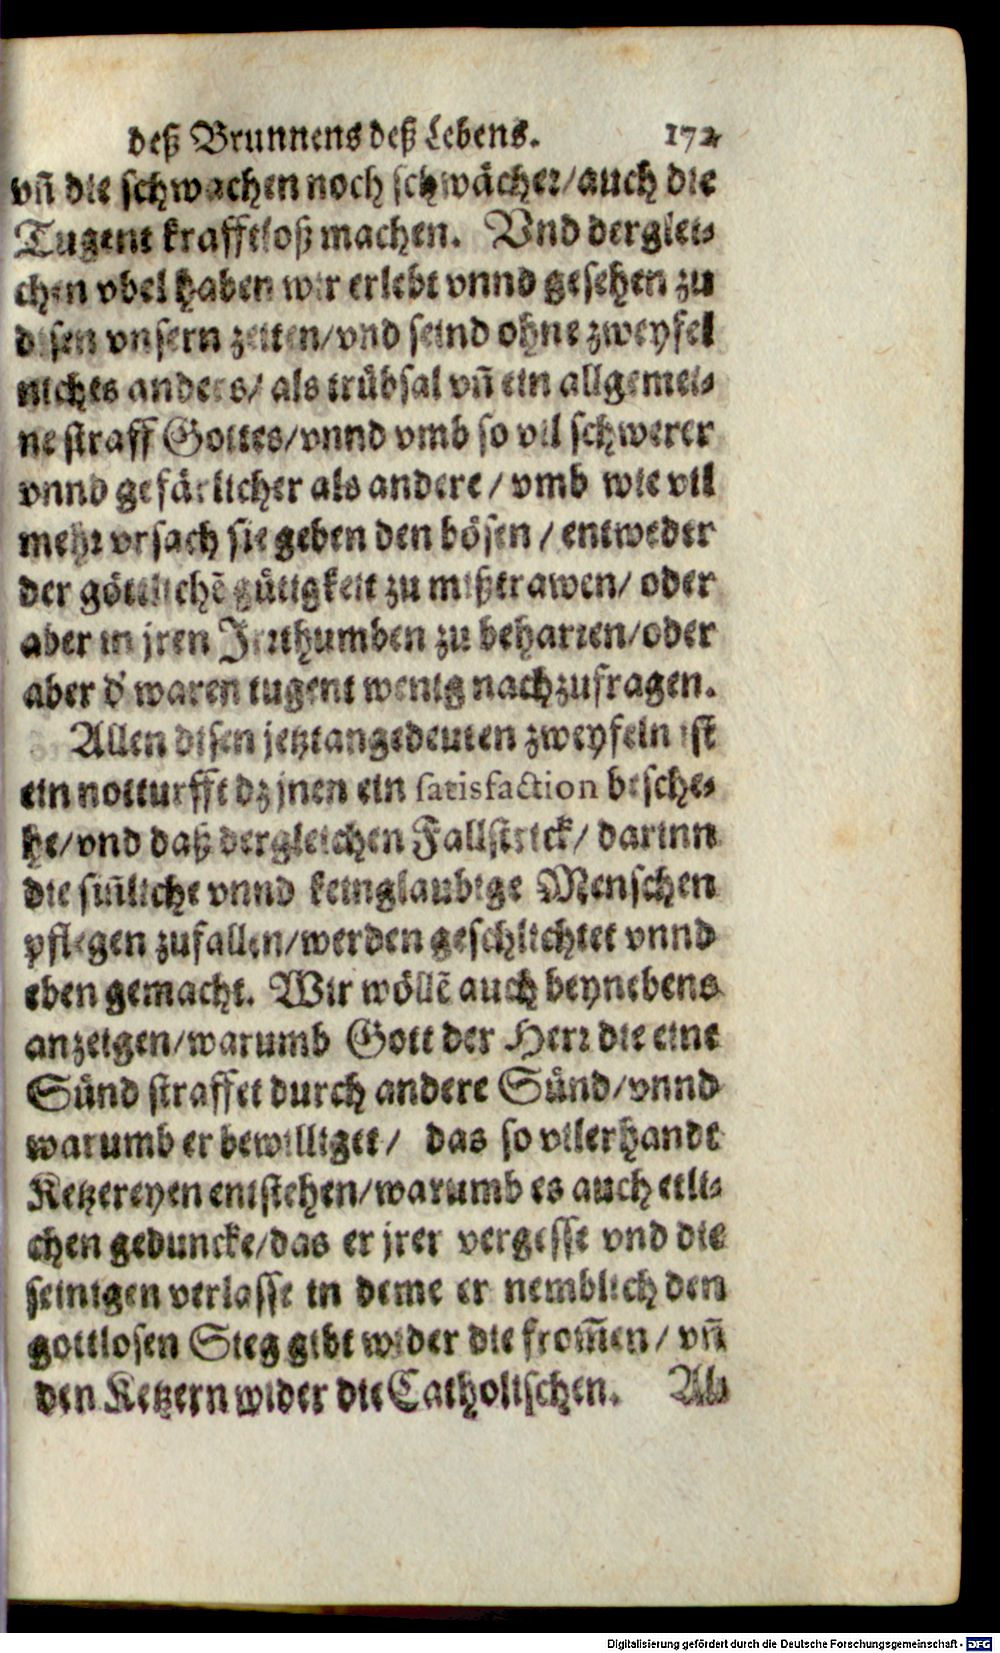 deß Brunnens deß Lebens. 172
vñ die schwachen noch schwächer/auch die
Tugent krafftloß machen. Vnd derglei-
chen vbel haben wir erlebt vnnd gesehen zu
disen vnsern zeiten/vnd seind ohne zweyfel
nichts anders/ als trübsal vñ ein allgemei-
ne straff Gottes/vnnd vmb so vil schwerer
vnnd gefärlicher als andere/ vmb wie vil
mehr vrsach sie geben den bösen/ entweder
der göttlichẽ gütigkeit zu mißtrawen/ oder
aber in jren Irrthumben zu beharren/oder
aber d' waren tugent wenig nachzufragen.
Allen disen jetztangedeuten zweyfeln ist
ein notturfft dz jnen ein satisfaction besche-
he/vnd daß dergleichen Fallstrick/ darinn
die siñliche vnnd keinglaubige Menschen
pflegen zufallen/werden geschlichtet vnnd
eben gemacht. Wir wöllẽ auch beynebens
anzeigen/warumb Gott der Herr die eine
Sünd straffet durch andere Sünd/vnnd
warumb er bewilliget/ das so vilerhande
Ketzereyen entstehen/warumb es auch etli-
chen geduncke/das er jrer vergesse vnd die
seinigen verlasse in deme er nemblich den
gottlosen Sieg gibt wider die from̃en/ vñ
den Ketzern wider die Catholischen. Als
Digitalisierung gefördert durch die Deutsche Forschungsgemeinschaft - DFG